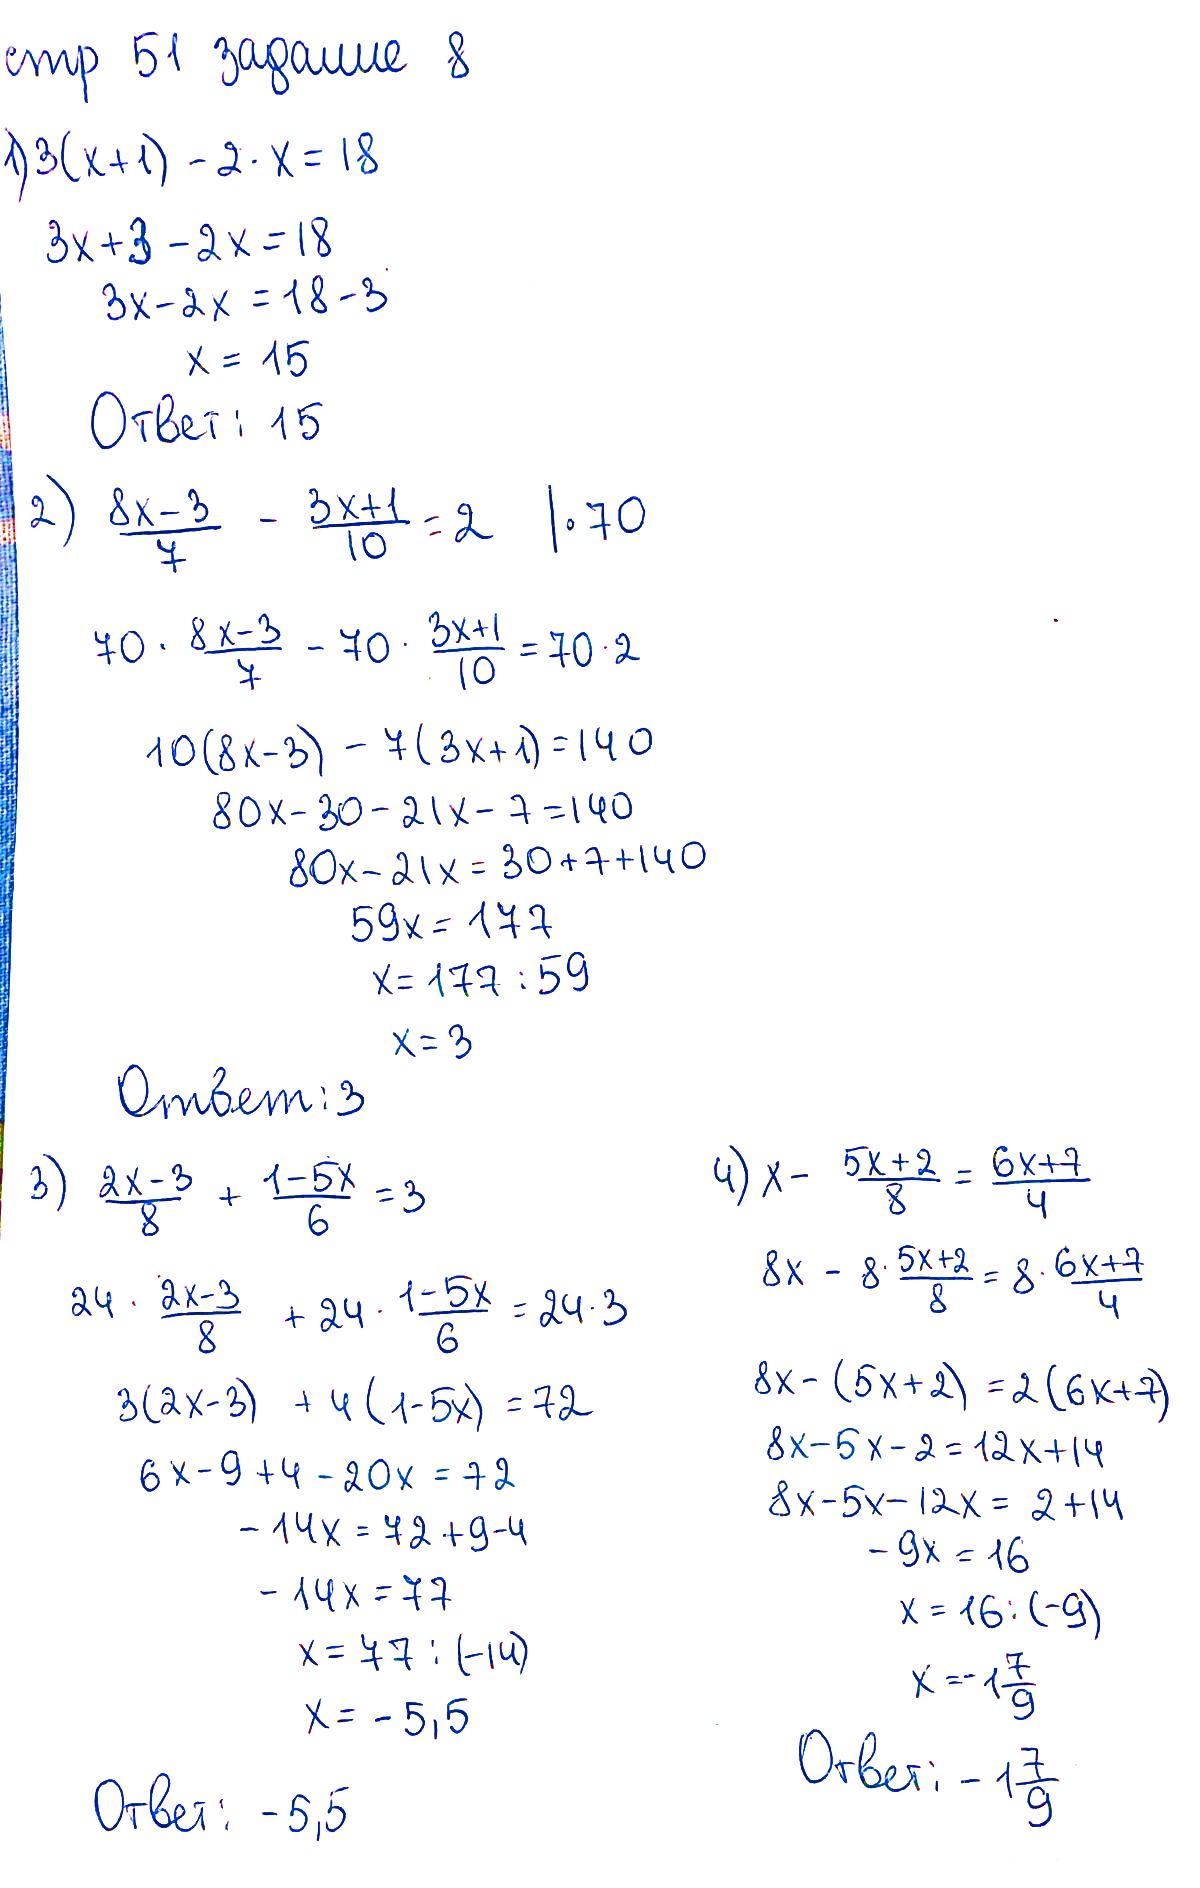 стр 51 задание 8
1) 3(x+1) - 2·x = 18
3x+3 - 2x = 18
3x-2x = 18-3
x = 15
Ответ: 15
2) (8x-3)/7 - (3x+1)/10 = 2 |·70
70 · (8x-3)/7 - 70 · (3x+1)/10 = 70·2
10(8x-3) - 7(3x+1) = 140
80x-30-21x-7=140
80x-21x = 30+7+140
59x = 177
x = 177 : 59
x = 3
Ответ: 3
3) (2x-3)/8 + (1-5x)/6 = 3
24 · (2x-3)/8 + 24 · (1-5x)/6 = 24·3
3(2x-3) + 4(1-5x) = 72
6x-9+4-20x = 72
-14x = 72+9-4
-14x = 77
x = 77 : (-14)
x = -5,5
Ответ: -5,5
4) x - (5x+2)/8 = (6x+7)/4
8x - 8·(5x+2)/8 = 8·(6x+7)/4
8x-(5x+2) = 2(6x+7)
8x-5x-2=12x+14
8x-5x-12x = 2+14
-9x = 16
x = 16:(-9)
x = -1 7/9
Ответ: -1 7/9